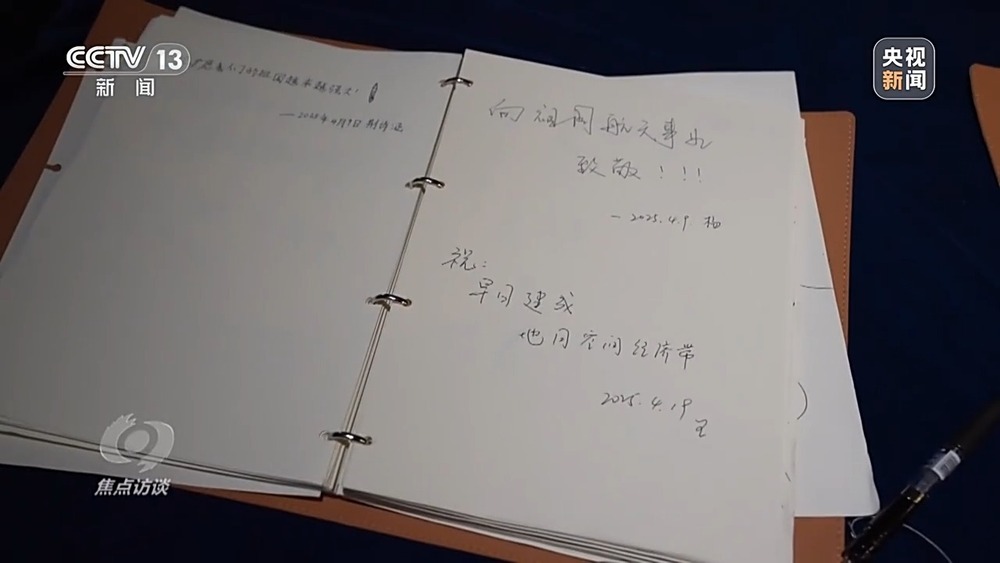 CCTV 13
新闻
央视
新闻
们的祖国越来越强大!
—2025年4月9日
向祖国航天事业
致敬!!!
—2025.4.9.
祝:
早日建成
地月空间经济带
2025.4.19
王
焦点访谈